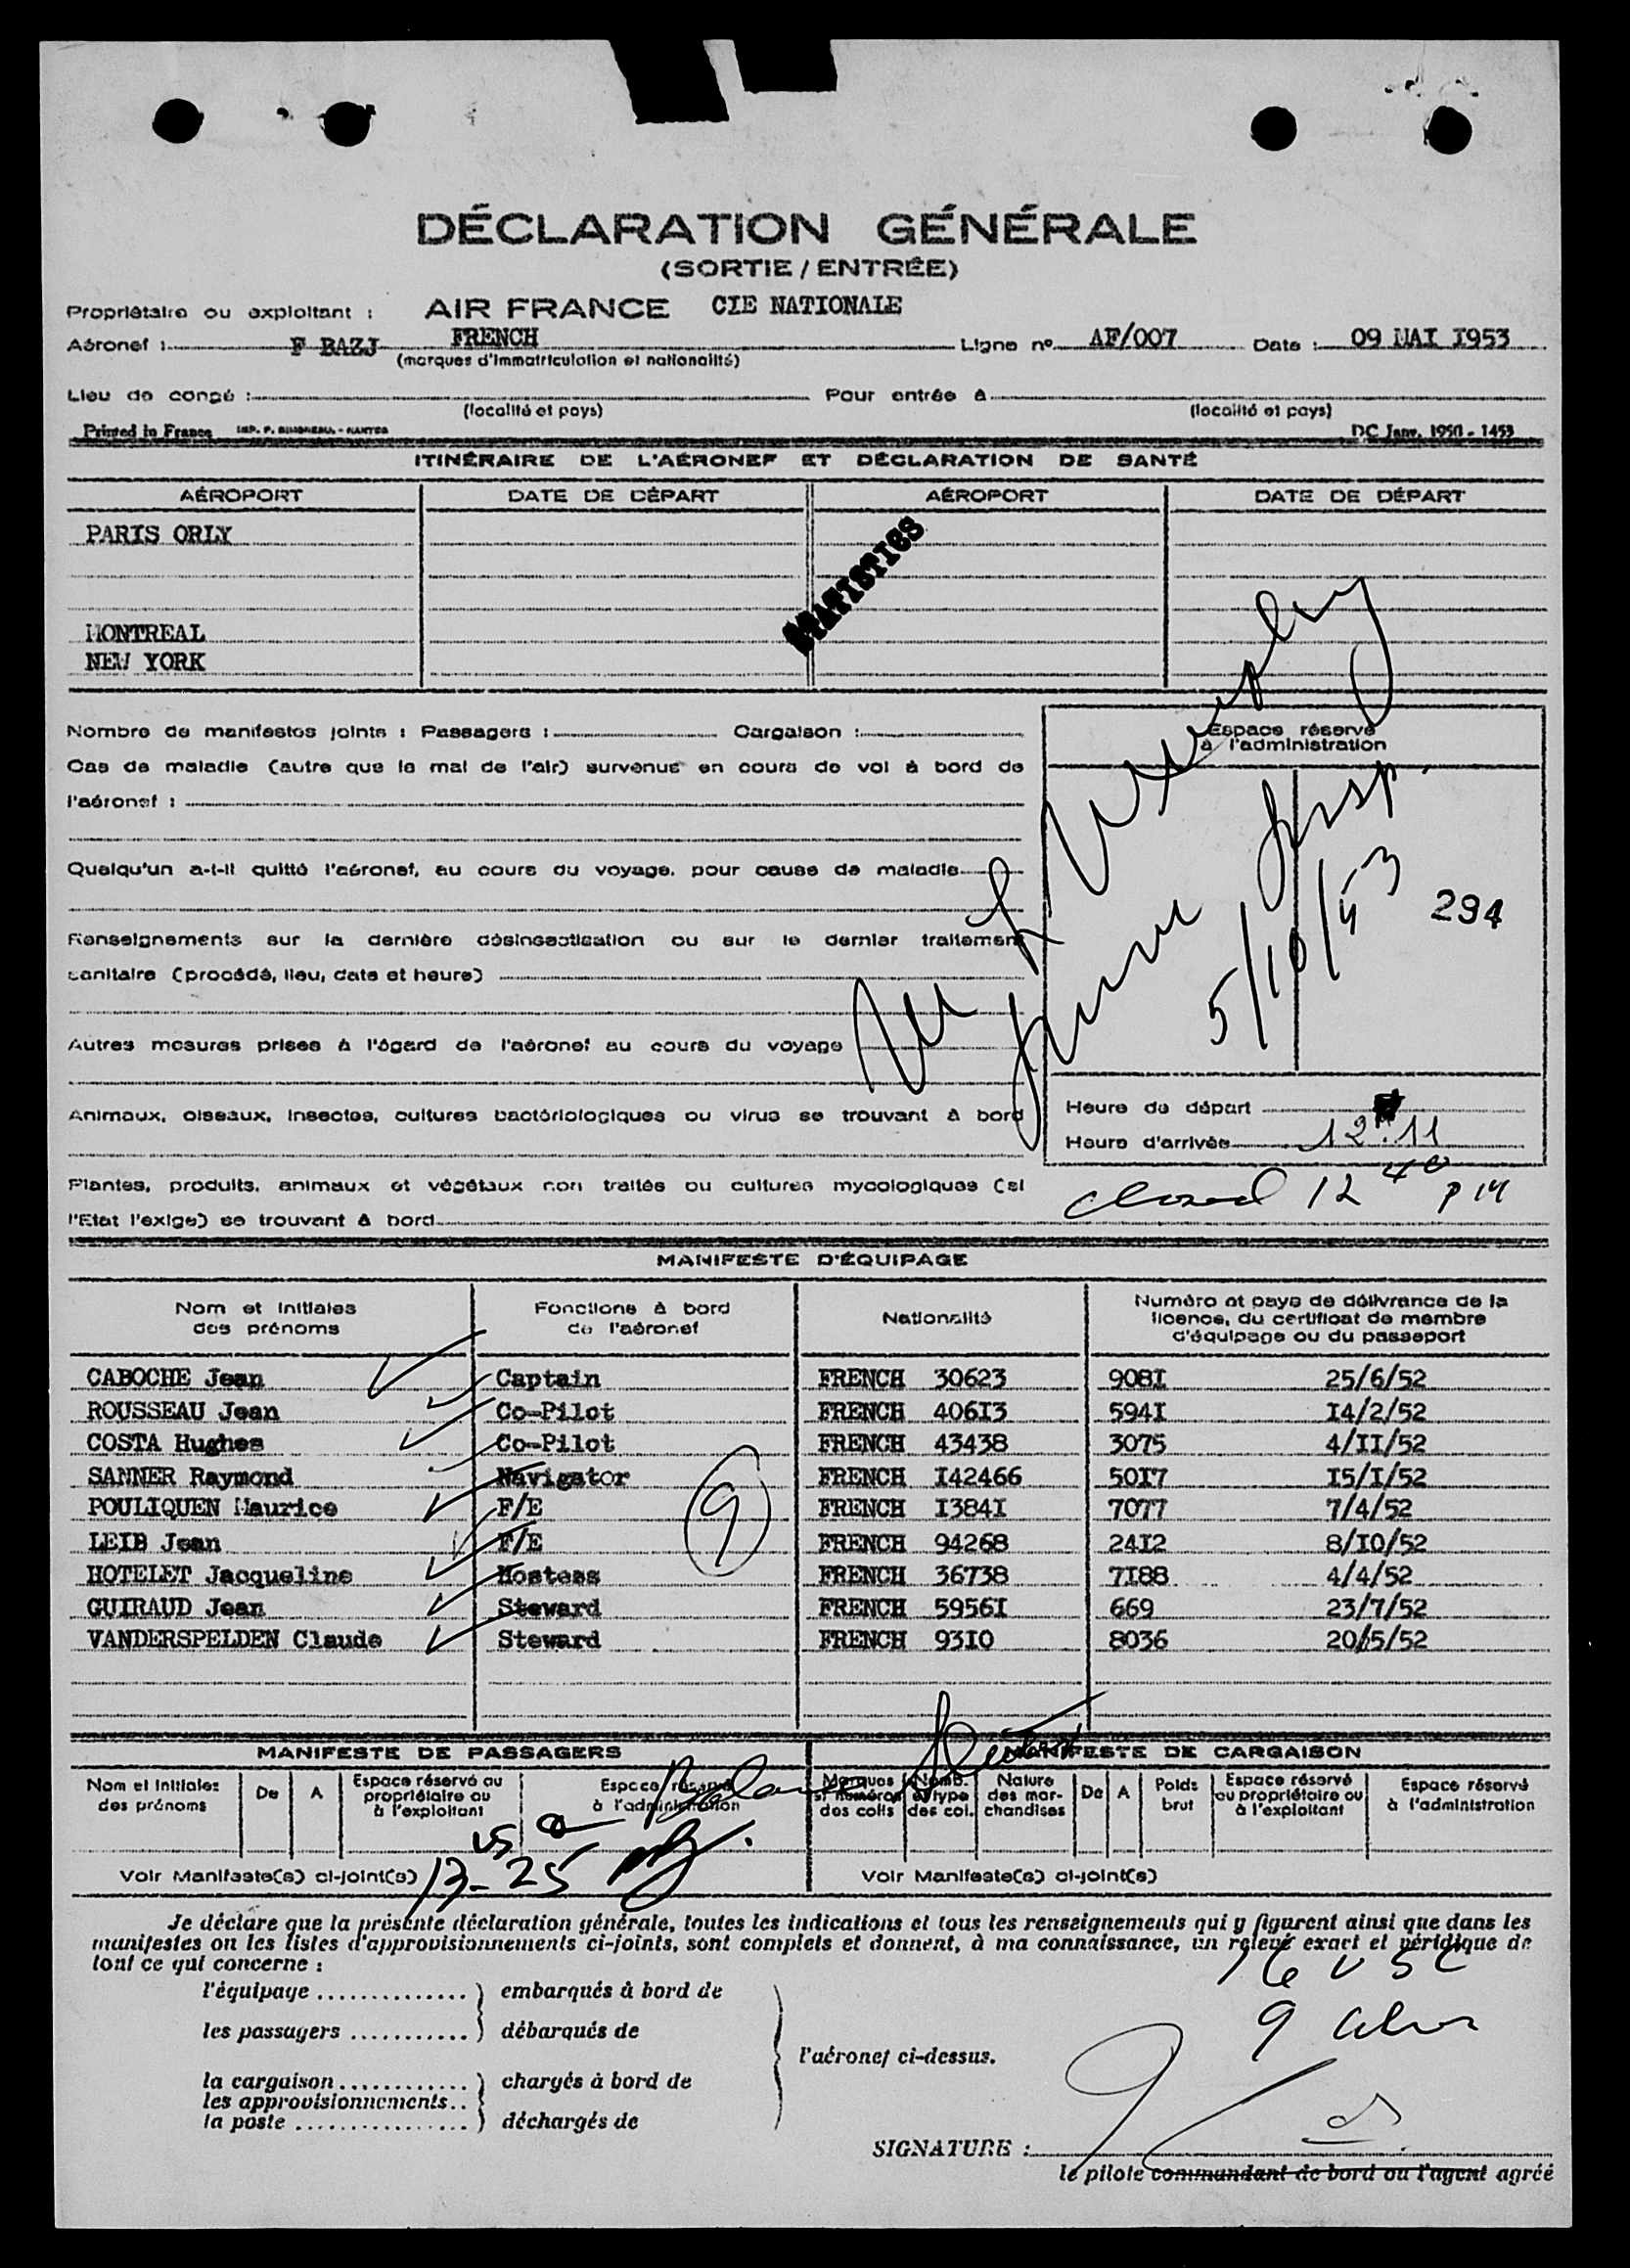 DÉCLARATION GÉNÉRALE
(SORTIE / ENTRÉE)
Propriétaire ou exploitant : AIR FRANCE CIE NATIONALE
Aéronef : F BAZJ FRENCH Ligne nº AF/007 Date : 09 MAI I953
(marques d'immatriculation et nationalité)
Lieu de congé : Pour entrée à
(localité et pays) (localité et pays)
Printed in France DC Janv. 1950 - 1453
ITINÉRAIRE DE L'AÉRONEF ET DÉCLARATION DE SANTÉ
AÉROPORT DATE DE DÉPART AÉROPORT DATE DE DÉPART
PARIS ORLY
STATISTICS
MONTREAL
NEW YORK
Nombre de manifestes joints : Passagers : Cargaison :
Espace réservé
à l'administration
Cas de maladie (autre que le mal de l'air) survenus en cours de vol à bord de
l'aéronef :
Quelqu'un a-t-il quitté l'aéronef, au cours du voyage, pour cause de maladie
Insp.
5/10/53
294
Renseignements sur la dernière désinsectisation ou sur le dernier traitement
sanitaire (procédé, lieu, date et heure)
Autres mesures prises à l'égard de l'aéronef au cours du voyage
Animaux, oiseaux, insectes, cultures bactériologiques ou virus se trouvant à bord
Heure de départ
Heure d'arrivée 12.11
closed 12 40 PM
Plantes, produits, animaux et végétaux non traités ou cultures mycologiques (si
l'Etat l'exige) se trouvant à bord
MANIFESTE D'ÉQUIPAGE
Nom et initiales des prénoms Fonctions à bord de l'aéronef Nationalité Numéro et pays de délivrance de la licence, du certificat de membre d'équipage ou du passeport
CABOCHE Jean Captain FRENCH 30623 908I 25/6/52
ROUSSEAU Jean Co-Pilot FRENCH 406I3 594I I4/2/52
COSTA Hughes Co-Pilot FRENCH 43438 3075 4/II/52
SANNER Raymond Navigator FRENCH I42466 50I7 I5/I/52
POULIQUEN Maurice F/E FRENCH I384I 7077 7/4/52
LEIB Jean F/E FRENCH 94268 24I2 8/I0/52
HOTELET Jacqueline Hostess FRENCH 36738 7I88 4/4/52
GUIRAUD Jean Steward FRENCH 5956I 669 23/7/52
VANDERSPELDEN Claude Steward FRENCH 93I0 8036 20/5/52
9
MANIFESTE DE PASSAGERS MANIFESTE DE CARGAISON
Nom et initiales des prénoms De A Espace réservé au propriétaire ou à l'exploitant Espace réservé à l'administration Marques et numéros des colis Nomb. et type des col. Nature des marchandises De A Poids brut Espace réservé au propriétaire ou à l'exploitant Espace réservé à l'administration
Voir Manifeste(s) ci-joint(s) Voir Manifeste(s) ci-joint(s)
Je déclare que la présente déclaration générale, toutes les indications et tous les renseignements qui y figurent ainsi que dans les
manifestes ou les listes d'approvisionnements ci-joints, sont complets et donnent, à ma connaissance, un relevé exact et véridique de
tout ce qui concerne :
16 USC
l'équipage .............. embarqués à bord de
9
les passagers ........... débarqués de
l'aéronef ci-dessus.
la cargaison ............ chargés à bord de
les approvisionnements..
la poste ................ déchargés de
SIGNATURE :
le pilote commandant de bord ou l'agent agréé